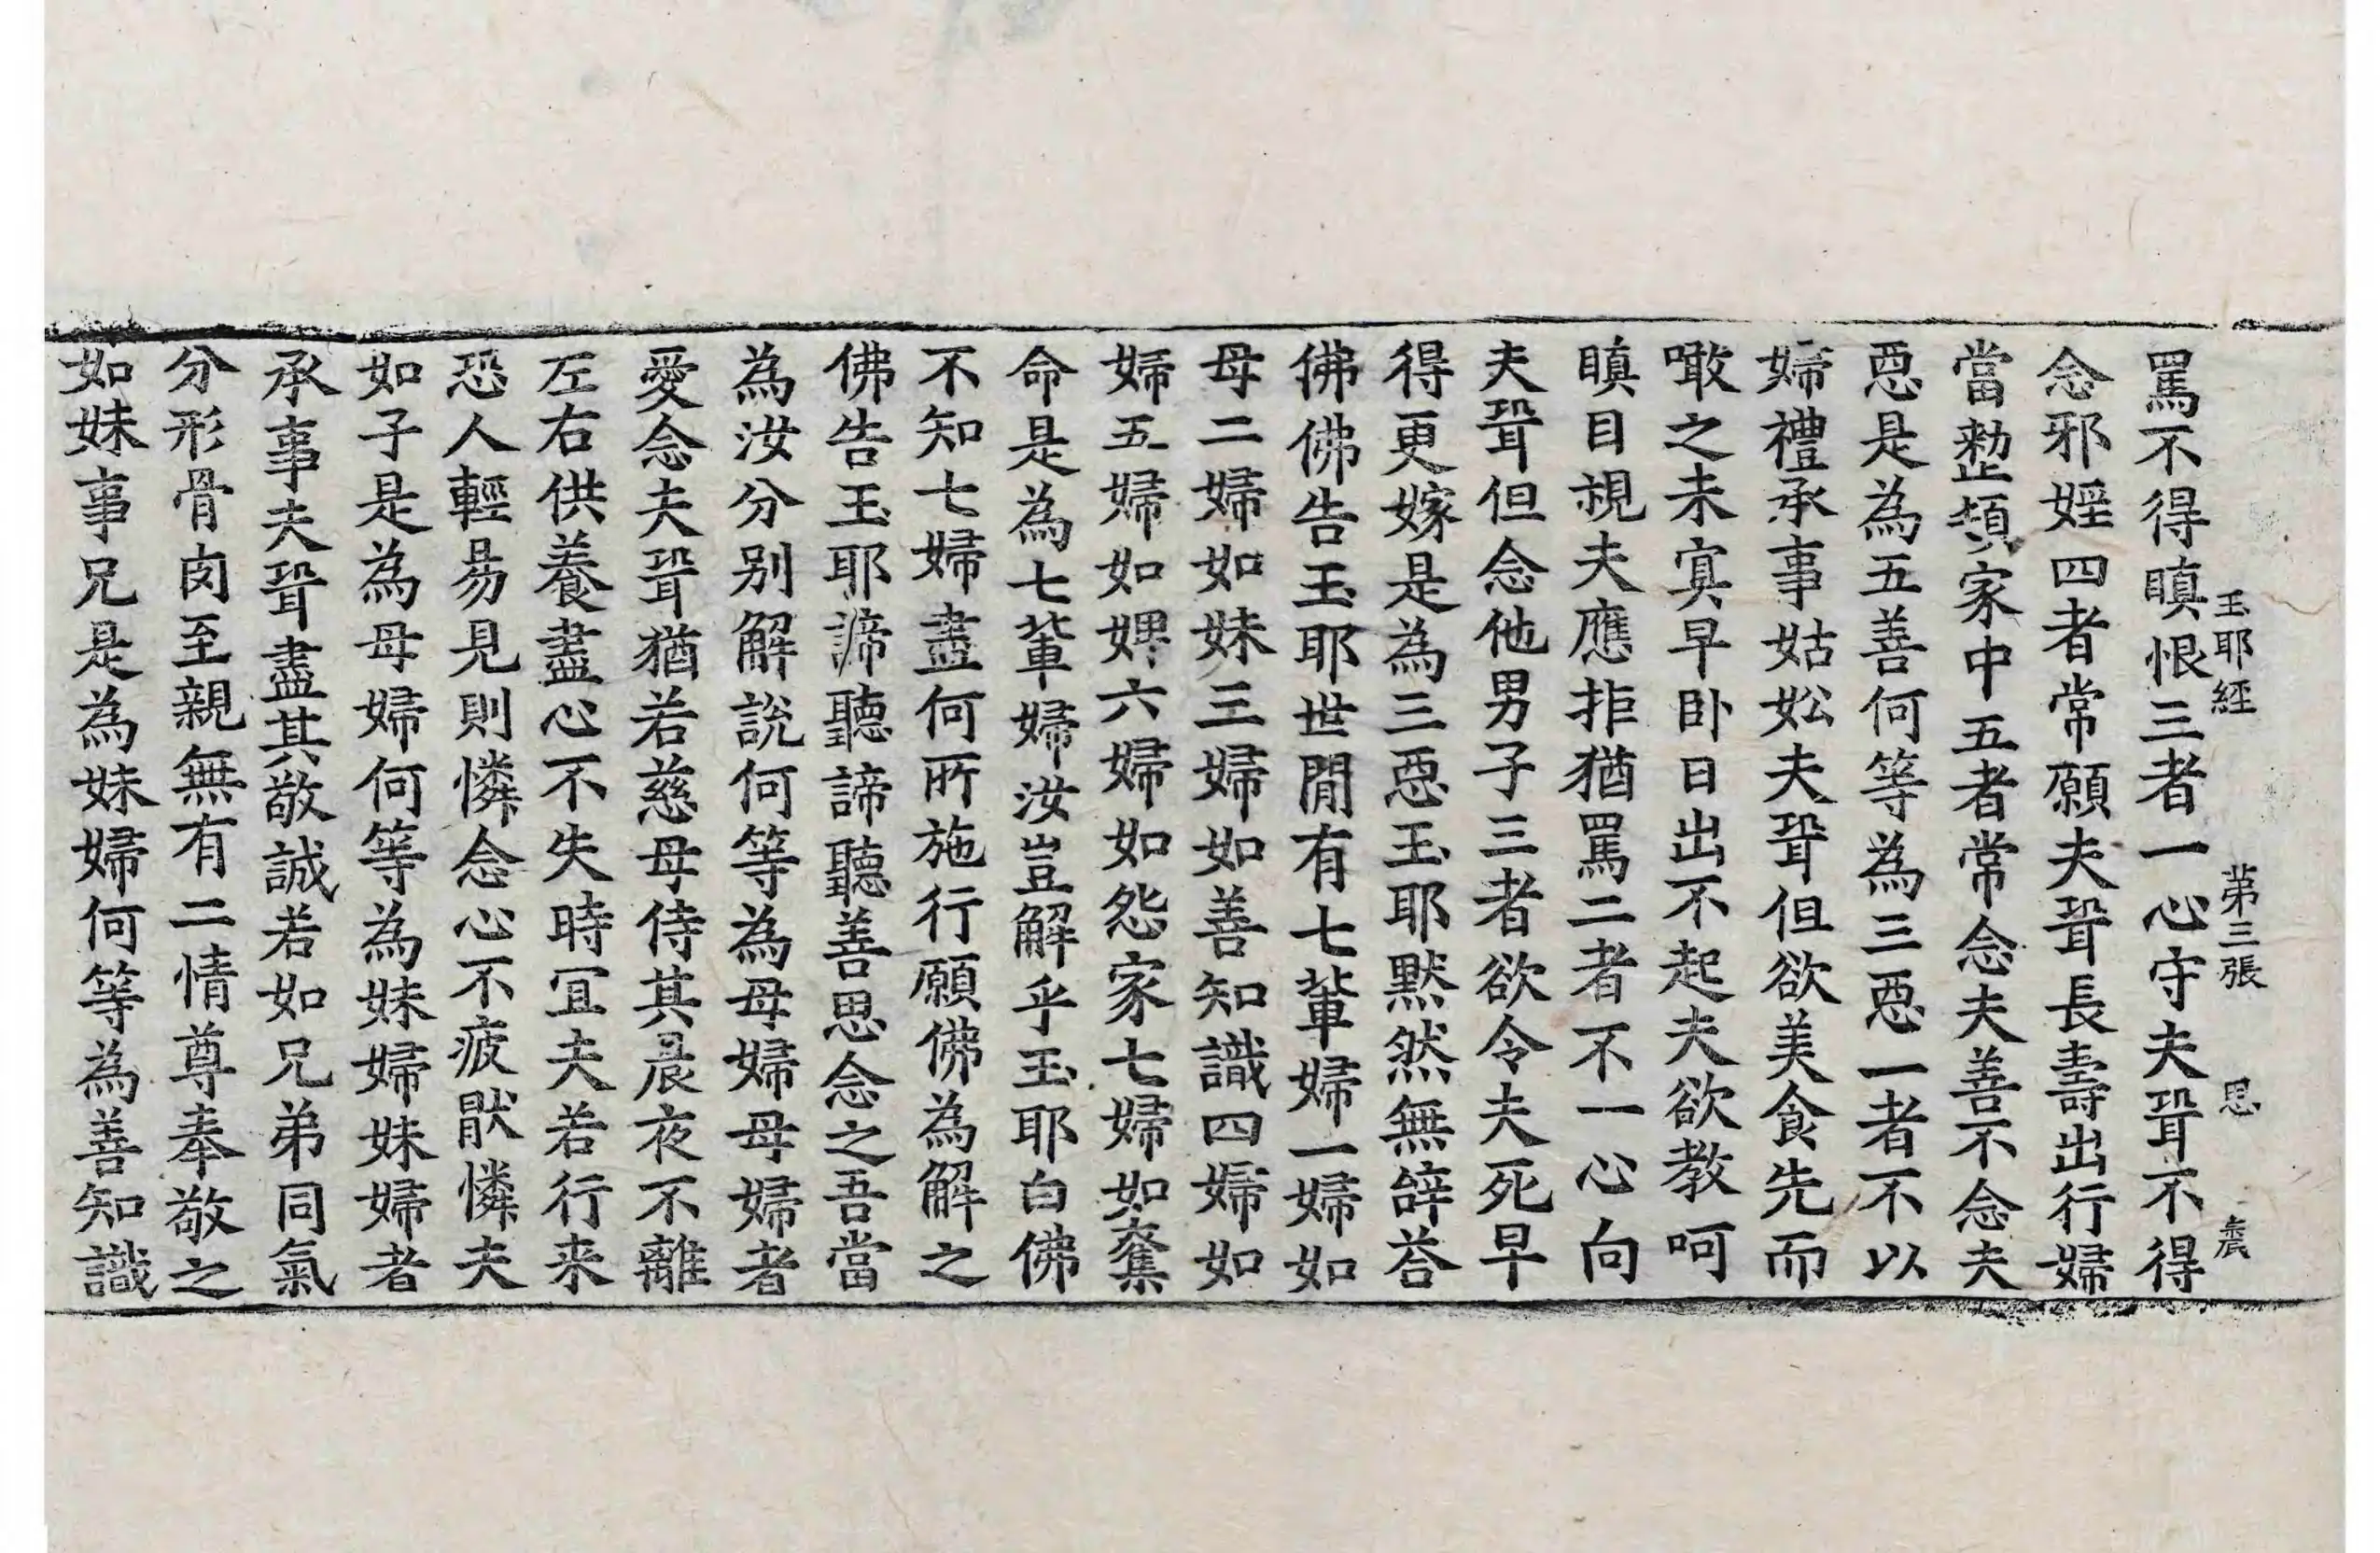 玉耶經 第三張 恩
罵不得瞋恨三者一心守夫聟不得
念邪婬四者常願夫聟長壽出行婦
當整頓家中五者常念夫善不念夫
惡是為五善何等為三惡一者不以
婦禮承事姑妐夫聟但欲美食先而
噉之未寘早卧日出不起夫欲教呵
瞋目視夫應拒猶罵二者不一心向
夫聟但念他男子三者欲令夫死早
得更嫁是為三惡玉耶默然無辝荅
佛佛告玉耶世閒有七軰婦一婦如
母二婦如妹三婦如善知識四婦如
婦五婦如婢六婦如怨家七婦如奪
命是為七軰婦汝豈解乎玉耶白佛
不知七婦盡何所施行願佛為解之
佛告玉耶諦聽諦聽善思念之吾當
為汝分別解說何等為母婦母婦者
愛念夫聟猶若慈母侍其晨夜不離
左右供養盡心不失時冝夫若行来
恐人輕易見則憐念心不疲猒憐夫
如子是為母婦何等為妹婦妹婦者
承事夫聟盡其敬誠若如兄弟同氣
分形骨肉至親無有二情尊奉敬之
如妹事兄是為妹婦何等為善知識